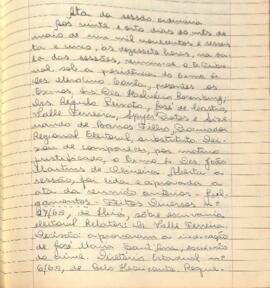 Ata da sessão ordinária
Aos vinte e oito dias do mês de
maio de um mil novecentos e sessen
ta e cinco, às dezessete horas, na sa
la das sessões, reuniu-se o Tribu
nal, sob a presidência do Exmo Sr.
Des. presentes os
Exmos. Srs. Des.
Drs. Régulo Peixoto, José de Castro,
Valle Ferreira,
de Barros Filho, Procurador
Regional Eleitoral, substituto. Dei
xou de comparecer, por motivo
justificado, o Exmo Sr. Des. João
Martins de Oliveira. Aberta a
sessão, foi lida e aprovada a
ata da sessão anterior. - Jul
gamentos - Feitos Diversos nº
27/65, de sôbre escrivania
eleitoral. Relator: Dr. Valle Ferreira.
Decisão: aprovaram a indicação
de José Maria escrivão
do crime. Diretório Estadual nº
6/65, de Belo Horizonte. Reque-